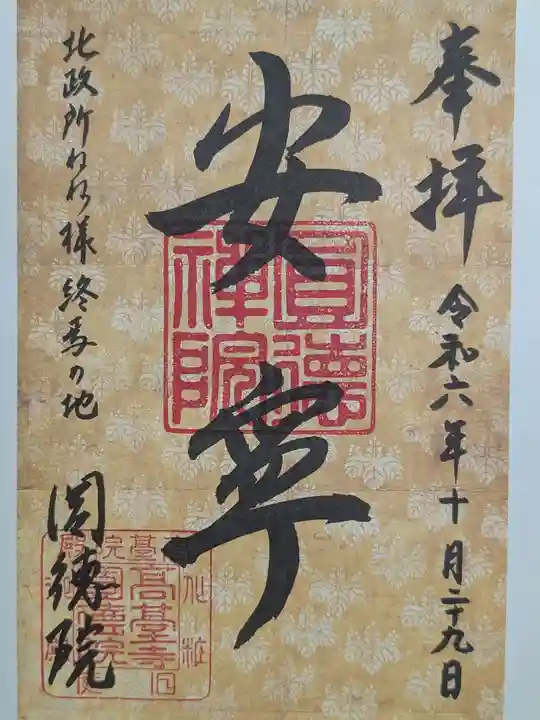 奉拝 令和六年十月二十九日
安寧
圓徳禅院
北政所ねね様 終焉の地
圓徳院
高臺寺